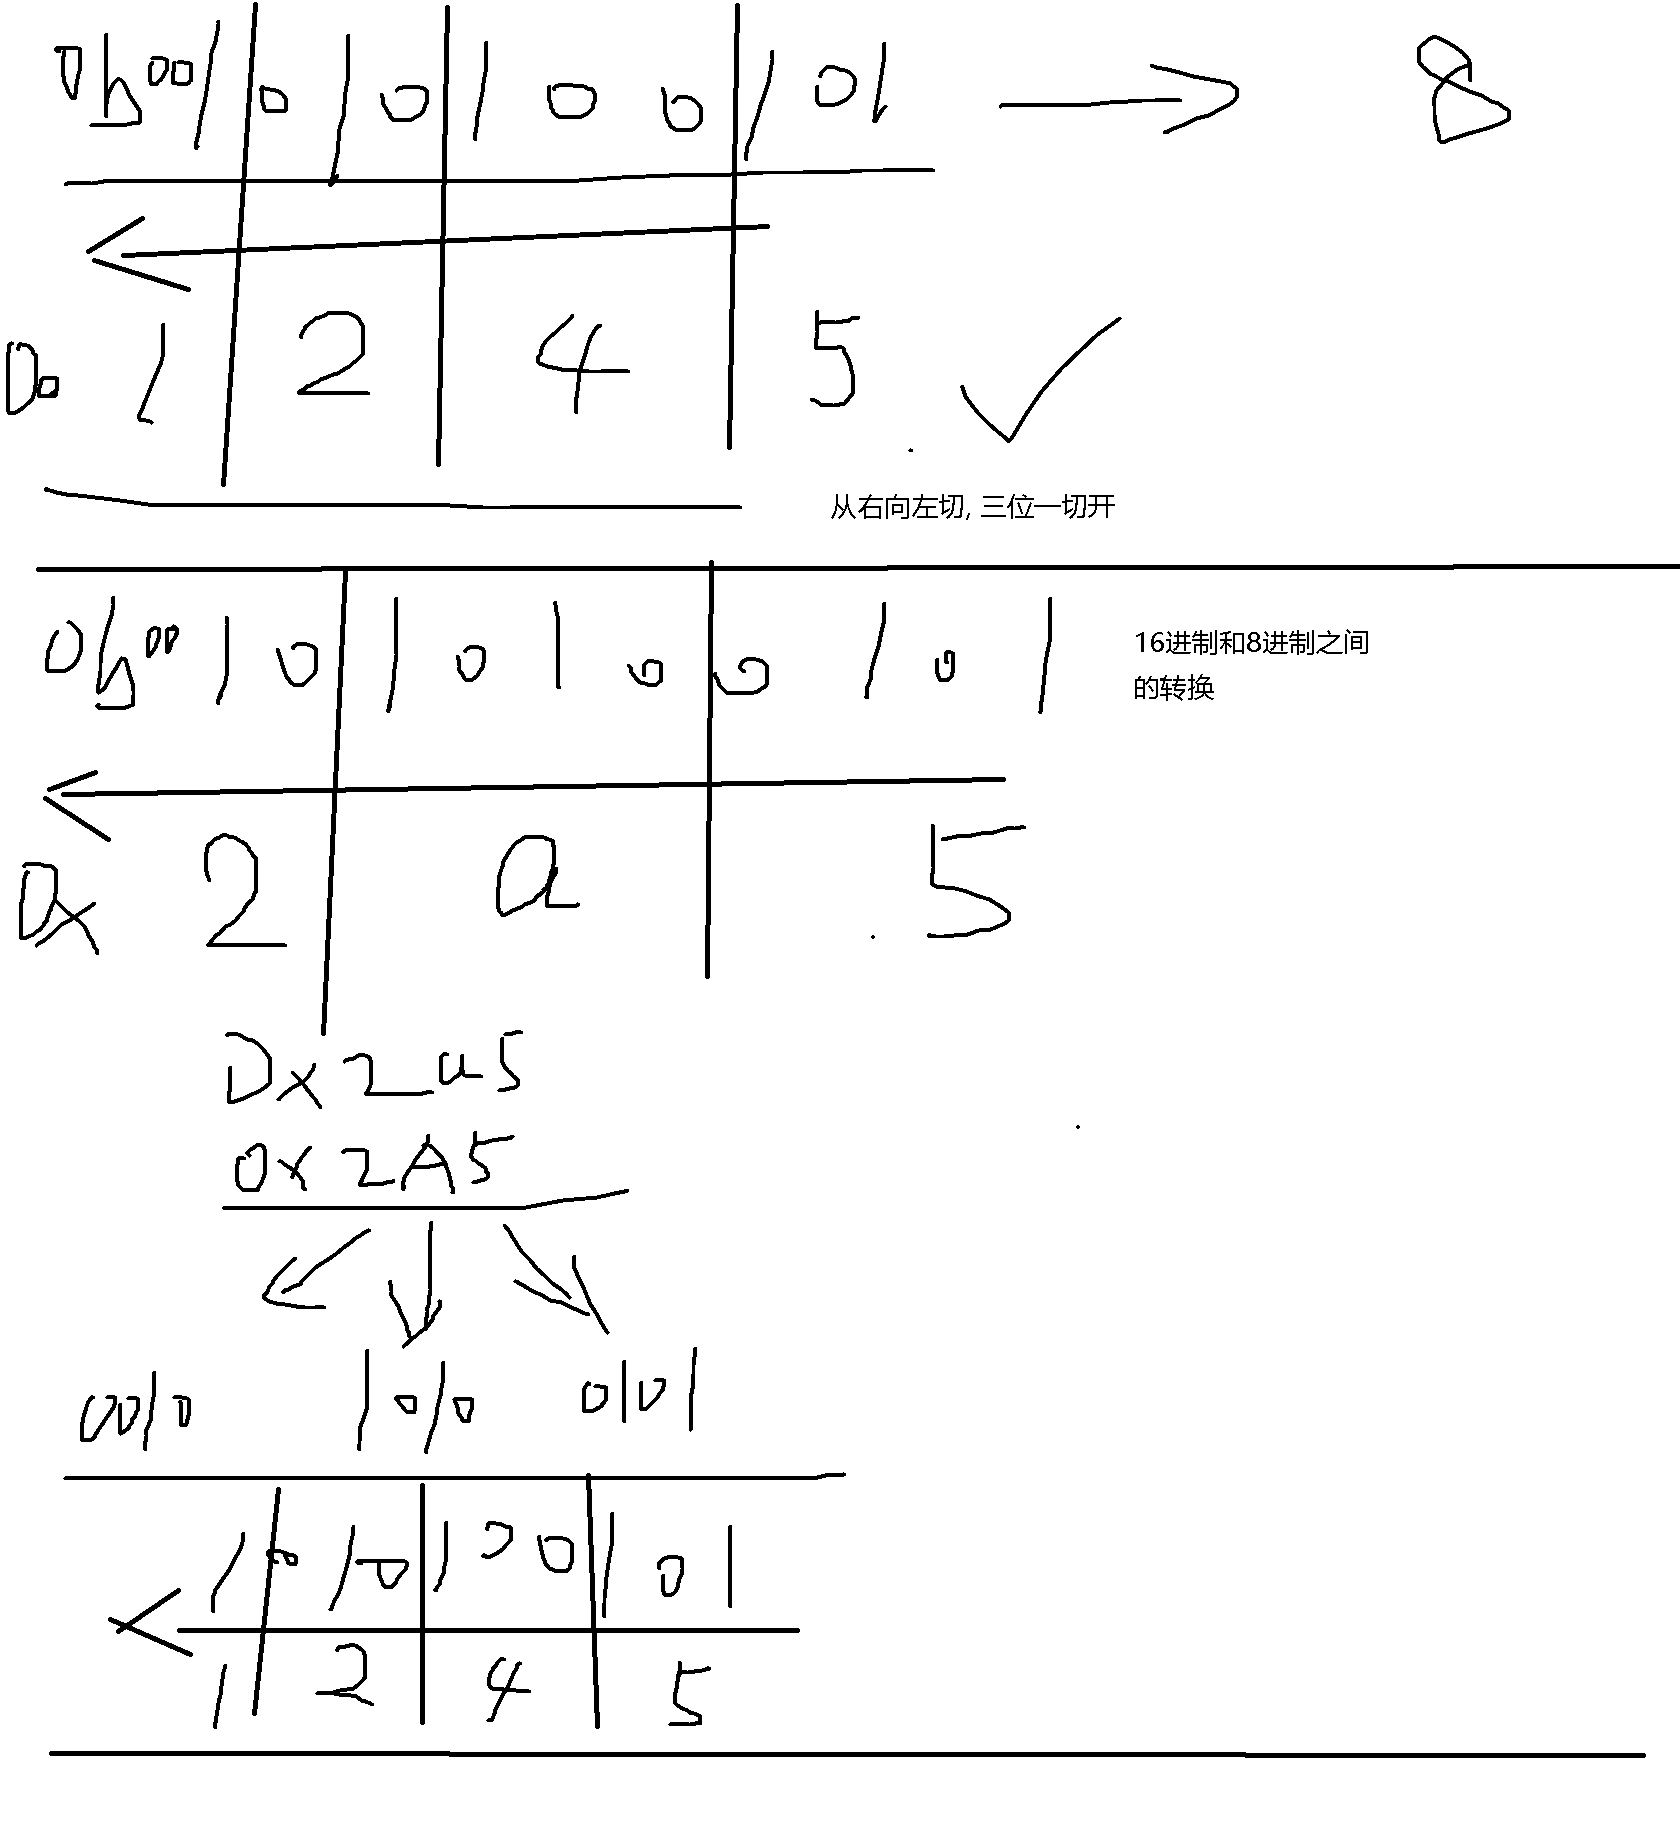 0b001 010 100 101 8
0o 1 2 4 5
从右向左切, 三位一切开
0b0010 1010 0101
16进制和8进制之间
的转换
0x 2 a 5
0x2a5
0x2A5
0010 1010 0101
1 010 100 101
1 2 4 5